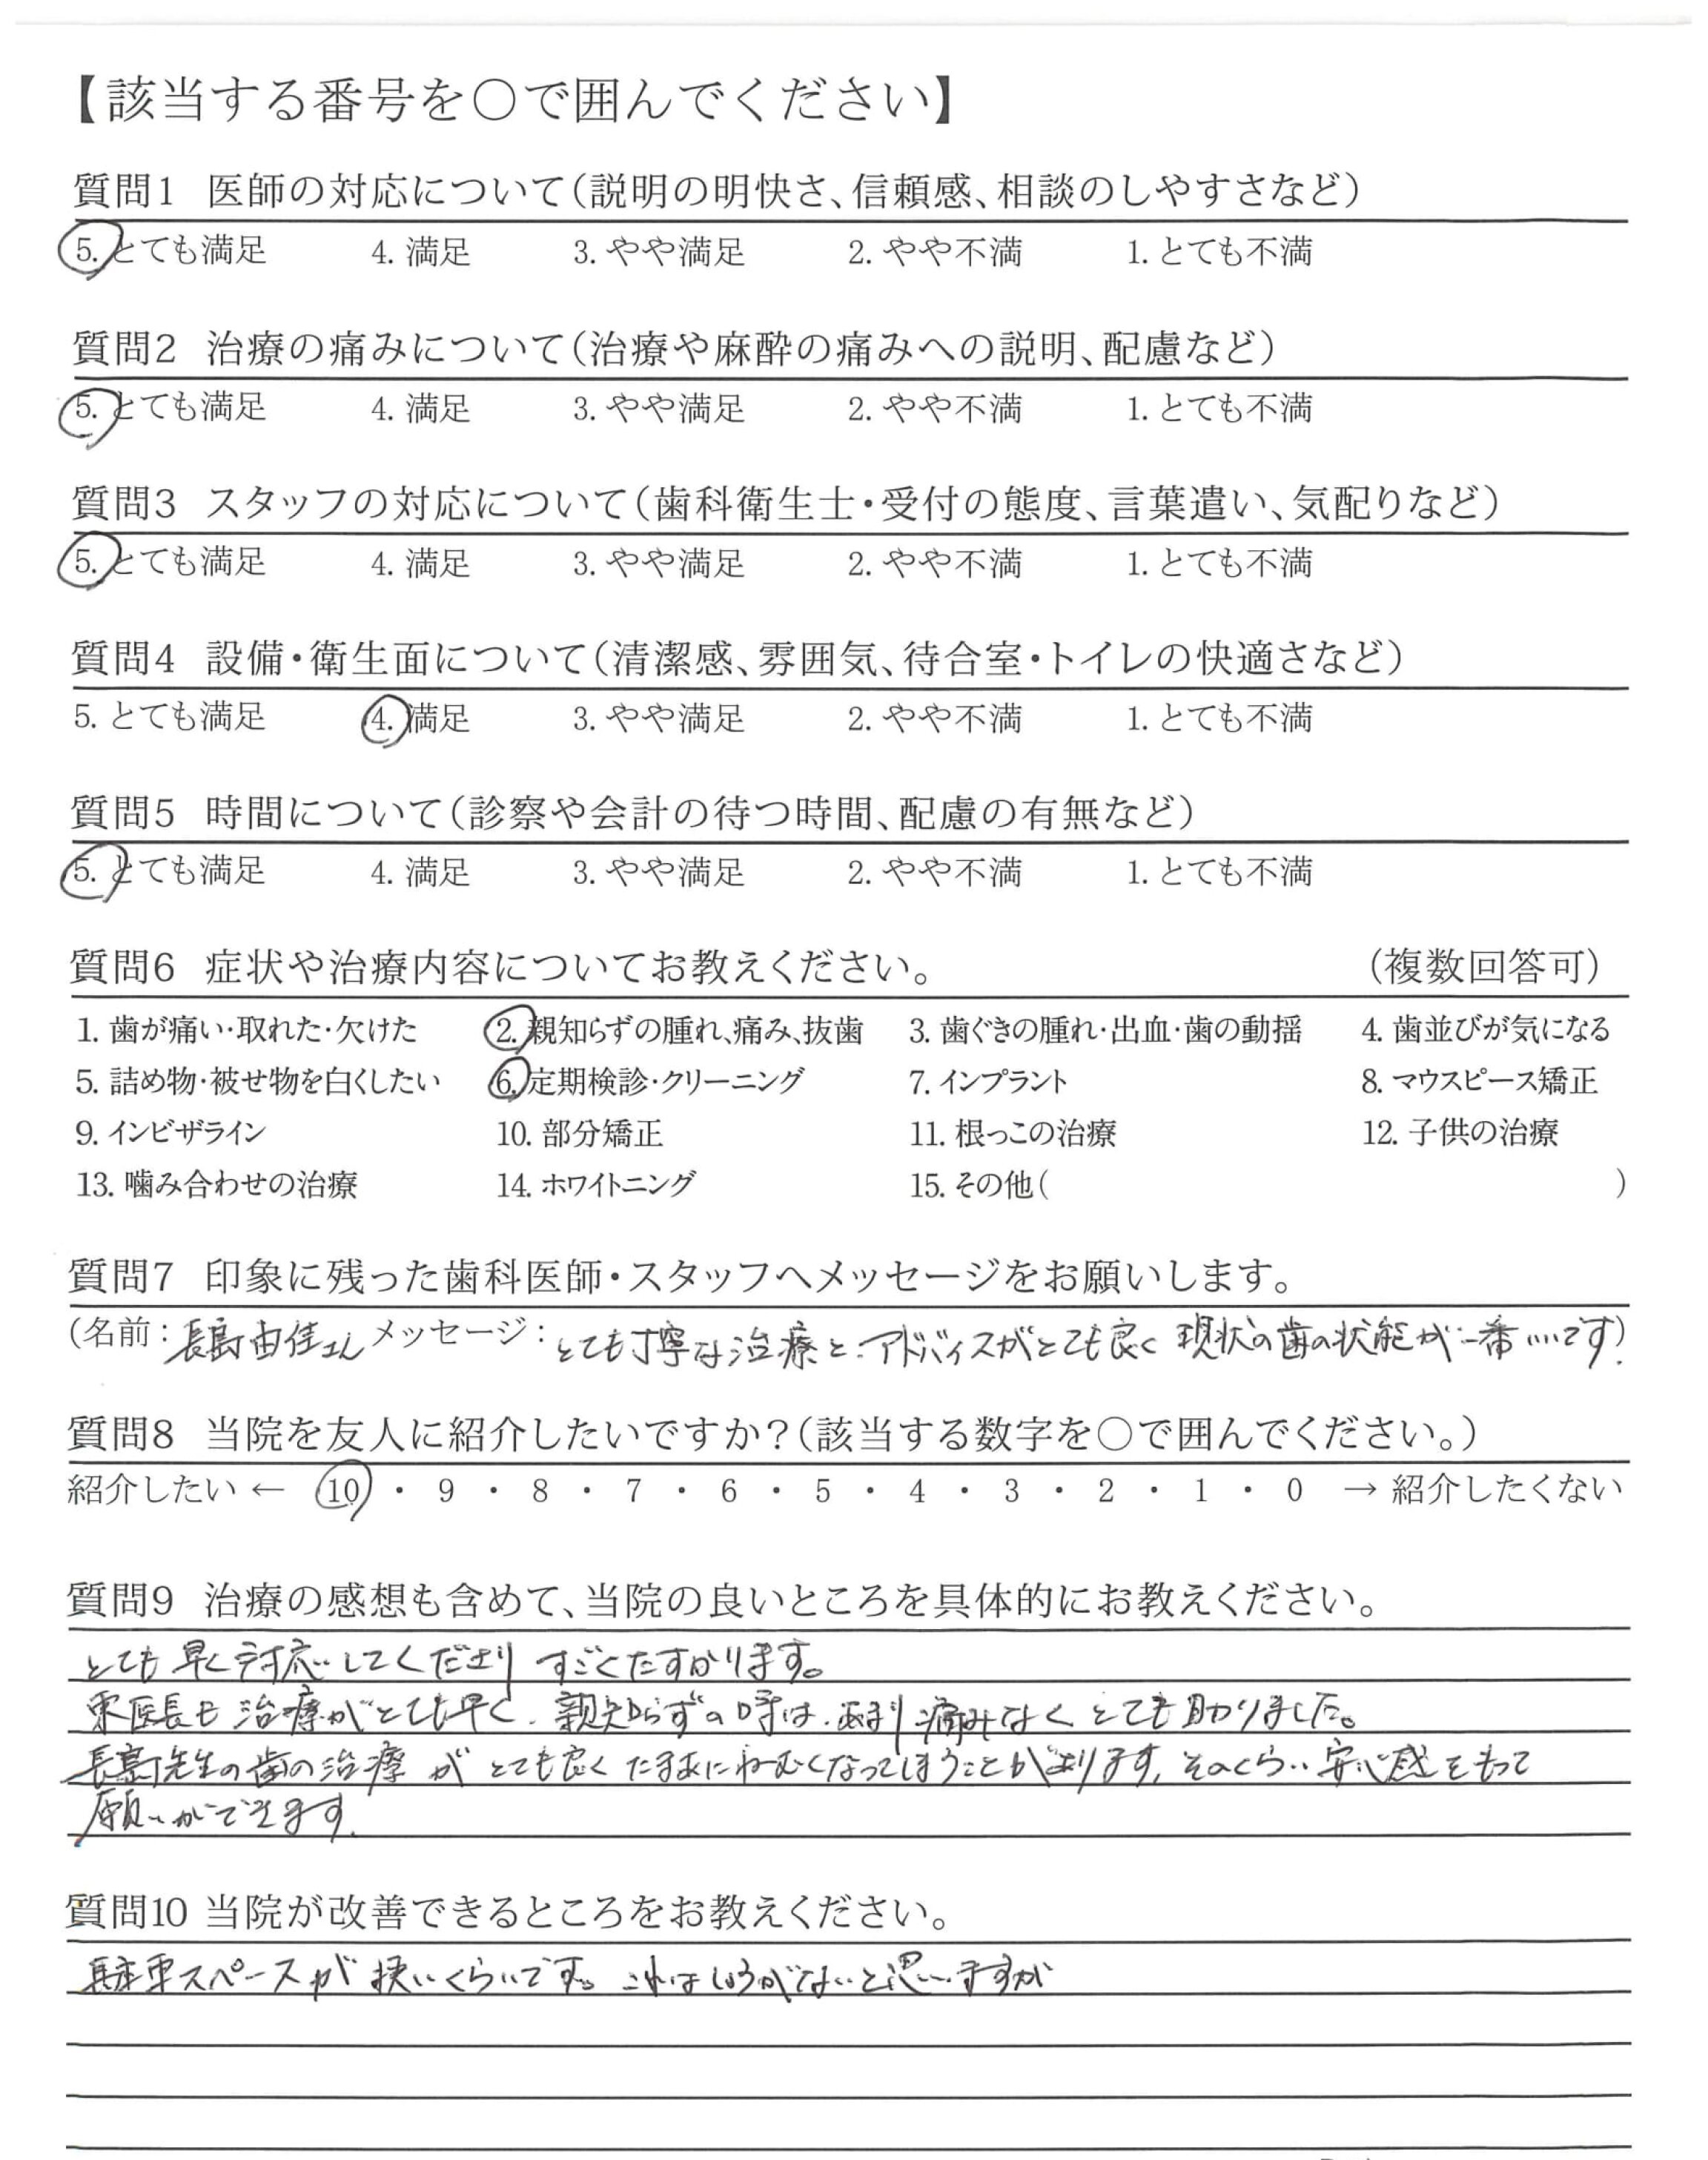 【該当する番号を○で囲んでください】
質問1 医師の対応について（説明の明快さ、信頼感、相談のしやすさなど）
5. とても満足 4. 満足 3. やや満足 2. やや不満 1. とても不満
質問2 治療の痛みについて（治療や麻酔の痛みへの説明、配慮など）
5. とても満足 4. 満足 3. やや満足 2. やや不満 1. とても不満
質問3 スタッフの対応について（歯科衛生士・受付の態度、言葉遣い、気配りなど）
5. とても満足 4. 満足 3. やや満足 2. やや不満 1. とても不満
質問4 設備・衛生面について（清潔感、雰囲気、待合室・トイレの快適さなど）
5. とても満足 4. 満足 3. やや満足 2. やや不満 1. とても不満
質問5 時間について（診察や会計の待つ時間、配慮の有無など）
5. とても満足 4. 満足 3. やや満足 2. やや不満 1. とても不満
質問6 症状や治療内容についてお教えください。 （複数回答可）
1. 歯が痛い・取れた・欠けた 2. 親知らずの腫れ、痛み、抜歯 3. 歯ぐきの腫れ・出血・歯の動揺 4. 歯並びが気になる
5. 詰め物・被せ物を白くしたい 6. 定期検診・クリーニング 7. インプラント 8. マウスピース矯正
9. インビザライン 10. 部分矯正 11. 根っこの治療 12. 子供の治療
13. 噛み合わせの治療 14. ホワイトニング 15. その他（ ）
質問7 印象に残った歯科医師・スタッフへメッセージをお願いします。
（名前：長島由佳さん メッセージ：とても丁寧な治療と、アドバイスがとても良く 現状の歯の状態が一番いいです）
質問8 当院を友人に紹介したいですか？（該当する数字を○で囲んでください。）
紹介したい ← 10 ・ 9 ・ 8 ・ 7 ・ 6 ・ 5 ・ 4 ・ 3 ・ 2 ・ 1 ・ 0 → 紹介したくない
質問9 治療の感想も含めて、当院の良いところを具体的にお教えください。
とても早く対応してくださり すごくたすかります。
東医長も治療がとても早く、親知らずの時は、あまり痛みなくとても助りました。
長島先生の歯の治療がとても良く たまあにねーむくなってしまうことがあります, そのくらい安心感をもって
願いができます.
質問10 当院が改善できるところをお教えください。
駐車スペースが狭いくらいです。これはしょうがないと思いますが